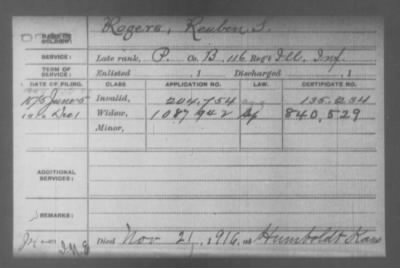 NAME OF SOLDIER: Rogers, Reuben S.
SERVICE: Late rank, P. Co. B, 116 Reg't Ill. Inf.
TERM OF SERVICE: Enlisted , 1 Discharged , 1
DATE OF FILING. CLASS. APPLICATION NO. LAW. CERTIFICATE NO.
1875 June 5 Invalid, 204,754 135,234
1916 Dec 1 Widow, 1087942 840,529
Minor,
ADDITIONAL SERVICES:
REMARKS:
Died Nov 21, 1916, at Humboldt Kans